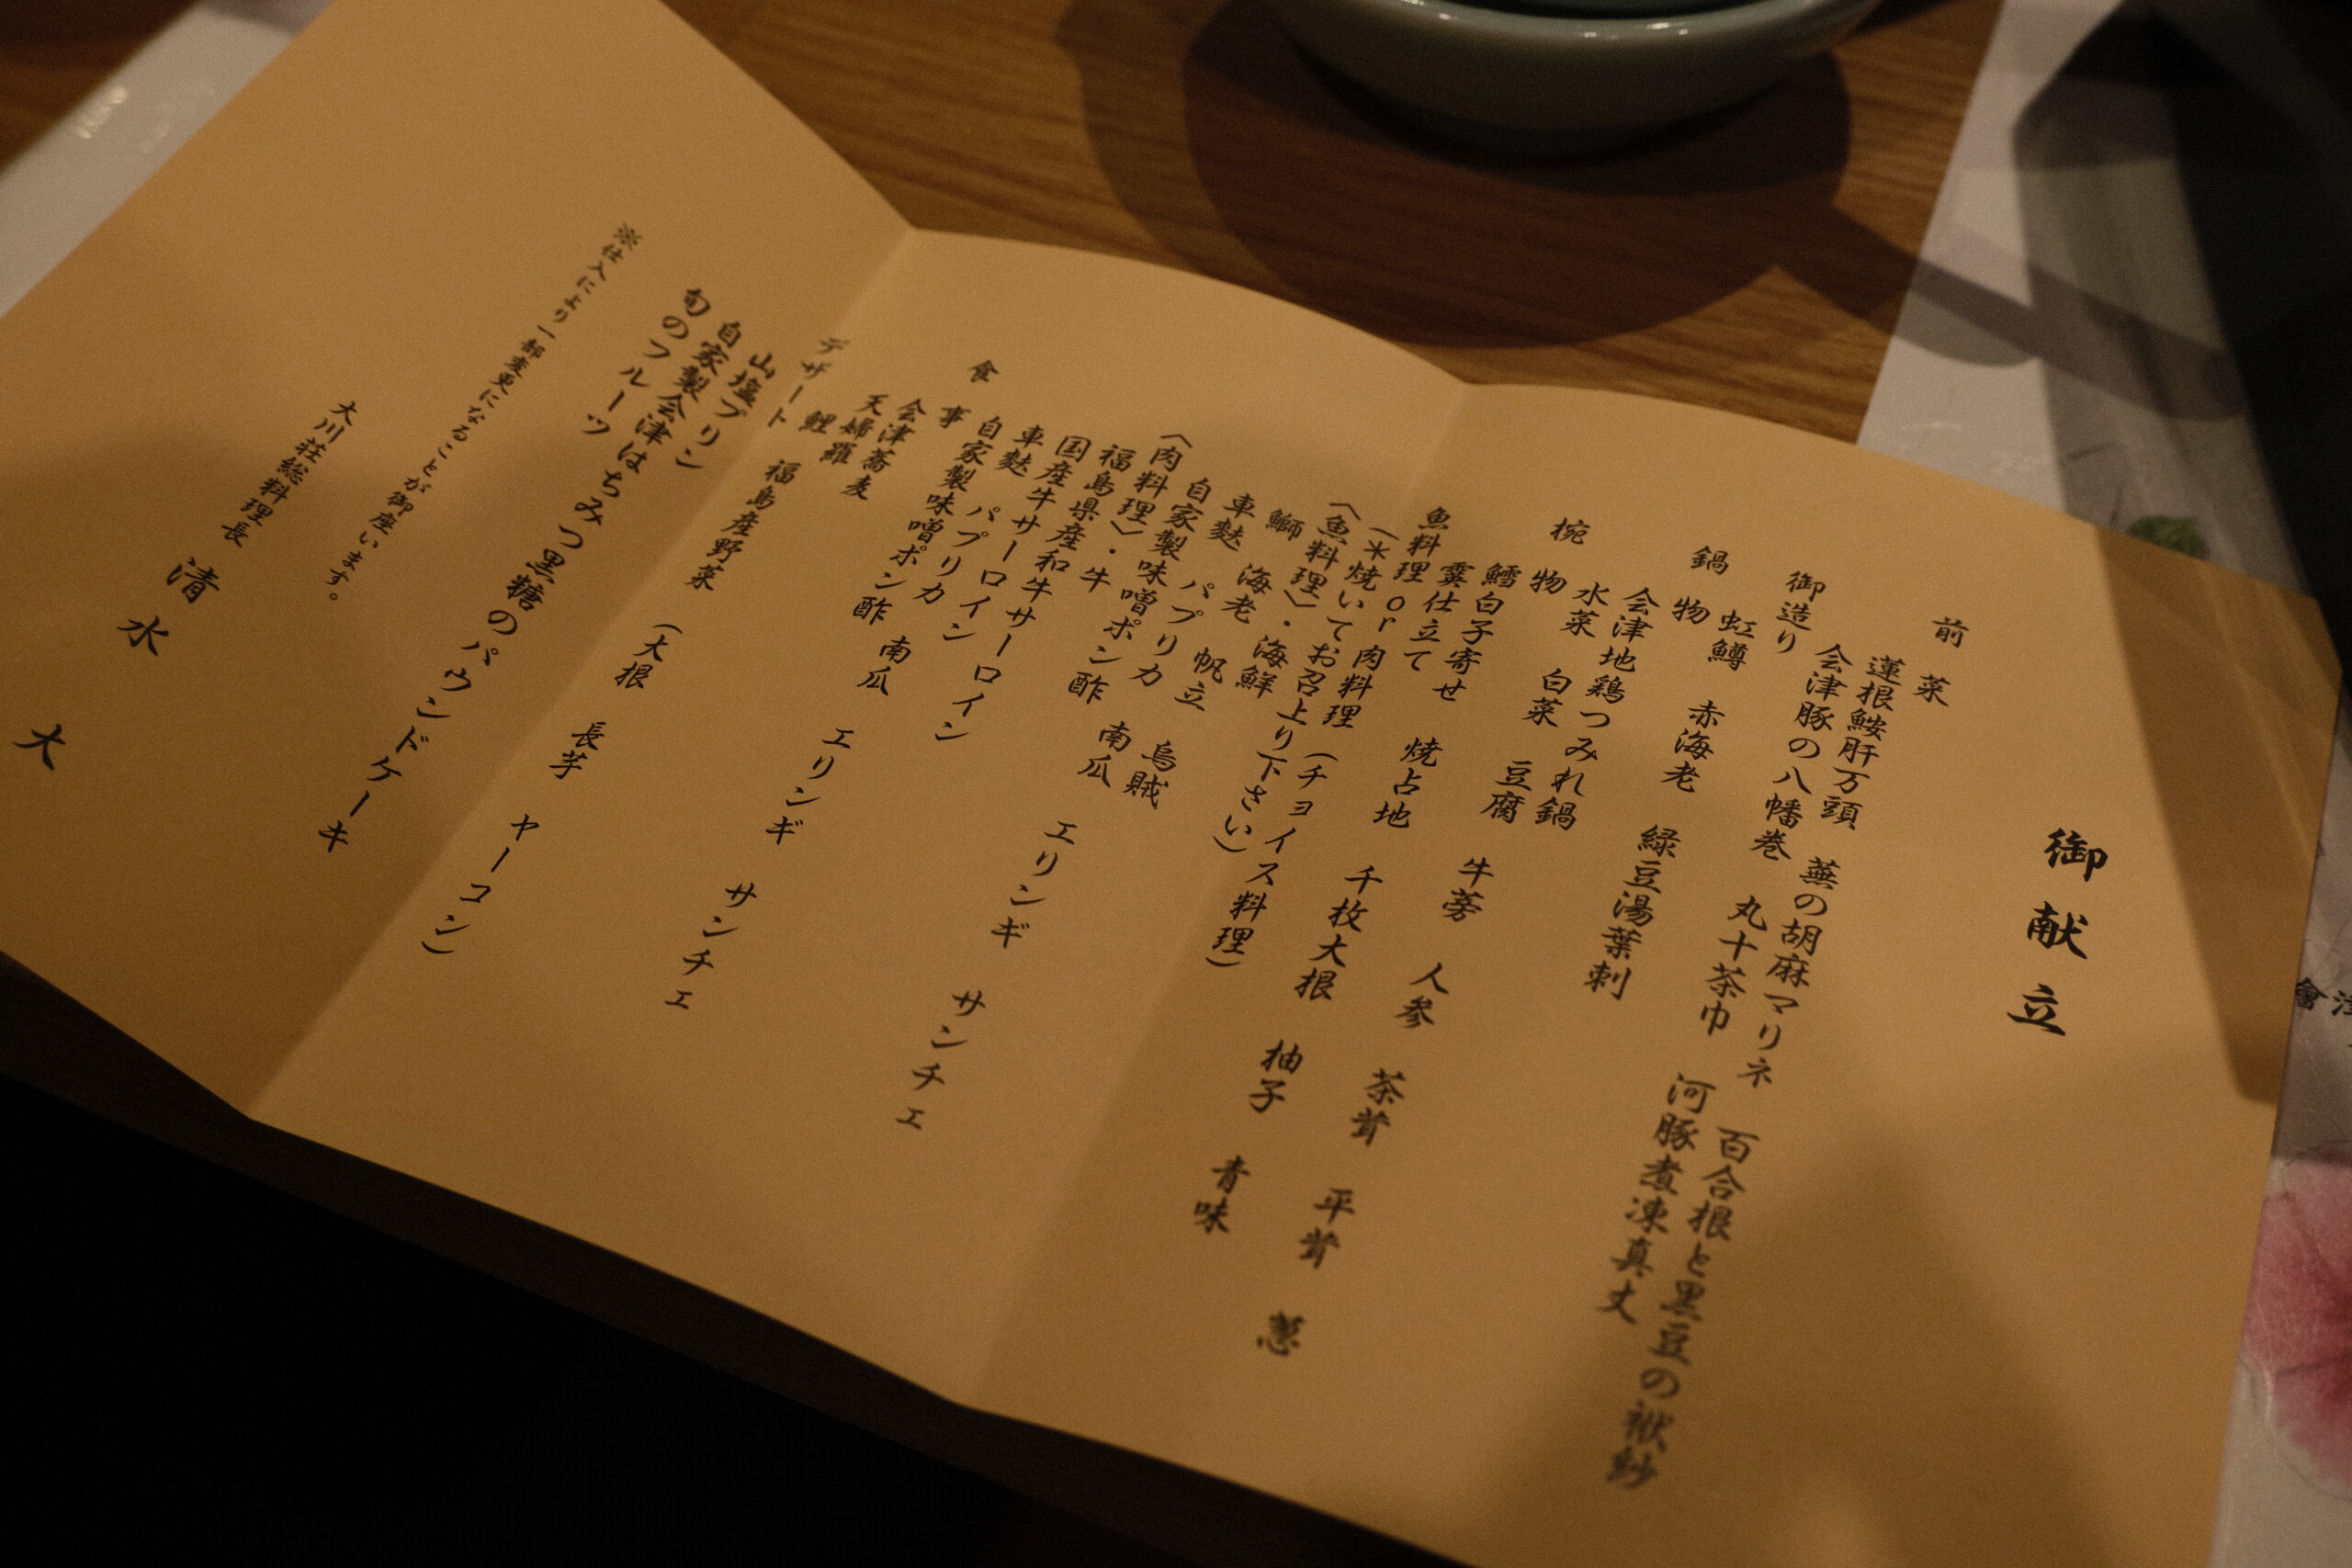 御献立
前菜
蓮根鮟肝万頭　蕪の胡麻マリネ　百合根と黒豆の袱紗
会津豚の八幡巻　丸十茶巾　河豚煮凍真丈
御造り
虹鱒　赤海老　緑豆湯葉刺
鍋物
会津地鶏つみれ鍋
水菜　白菜　豆腐　牛蒡　人参　茶茸　平茸　葱
椀物
鱈白子寄せ
霙仕立て　焼占地　千枚大根　柚子　青味
魚料理or肉料理（チョイス料理）
（＊焼いてお召上り下さい）
〈魚料理〉・海鮮
鰤　海老　帆立　烏賊
車麩　パプリカ　南瓜　エリンギ　サンチェ
自家製味噌ポン酢
〈肉料理〉・牛
福島県産和牛サーロイン
国産牛サーロイン
車麩　パプリカ　南瓜　エリンギ　サンチェ
自家製味噌ポン酢
食事
会津蕎麦
天婦羅
鯉　福島産野菜（大根　長芋　ヤーコン）
デザート
山塩プリン
自家製会津はちみつ黒糖のパウンドケーキ
旬のフルーツ
※仕入により一部変更になることが御座います。
大川荘総料理長　清水　大